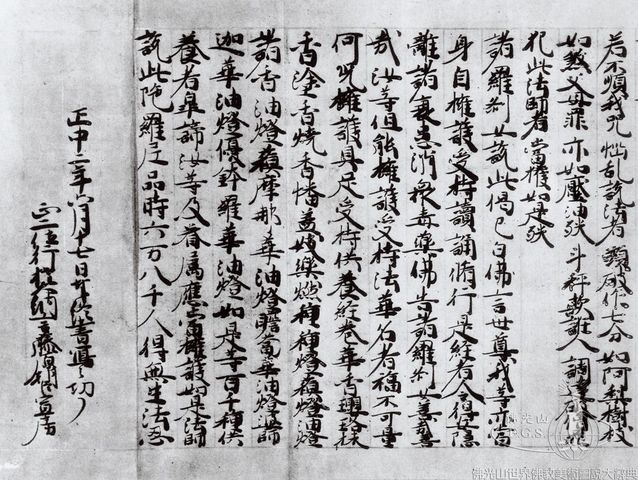 若不順我咒 惱乱說法者 頭破作七分 如阿梨樹枝
如殺父母罪 亦如壓油殃 斗秤欺誑人 調達破僧罪
犯此法師者 當獲如是殃
諸羅刹女說此偈已白佛言世尊我等亦當
身自擁護受持讀誦脩行是經者令得安隱
離諸衰患消衆毒藥佛告諸羅刹女善哉善
哉汝等但能擁護受持法華名者福不可量
何況擁護具足受持供養經卷華香瓔珞抹
香塗香燒香幡蓋妓樂燃種種燈蘇燈油燈
諸香油燈蘇摩那華油燈瞻蔔華油燈婆師
迦華油燈優鉢羅華油燈如是等百千種供
養者皐諦汝等及眷属應當擁護如是法師
說此陀羅尼品時六万八千人得無生法忍
正中二年六月十七日終書寫之功了
正二位行権大納言藤原朝臣
佛光山
F.G.S.
佛光山世界佛教美術圖說大辭典